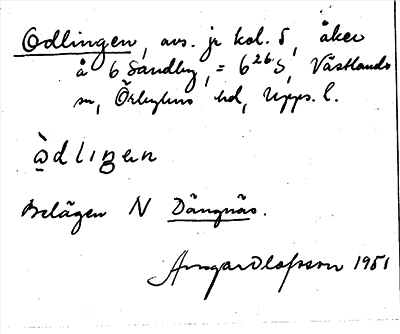 Odlingen, avs. jr kol. 5, åker
å 6 Sandby, = 6²⁶S, Västlands
sn, Örbyhus hd, Upps. l.
ò̱dlıŋən
Belägen N Dängnäs.
Ansgar Olofsson 1951